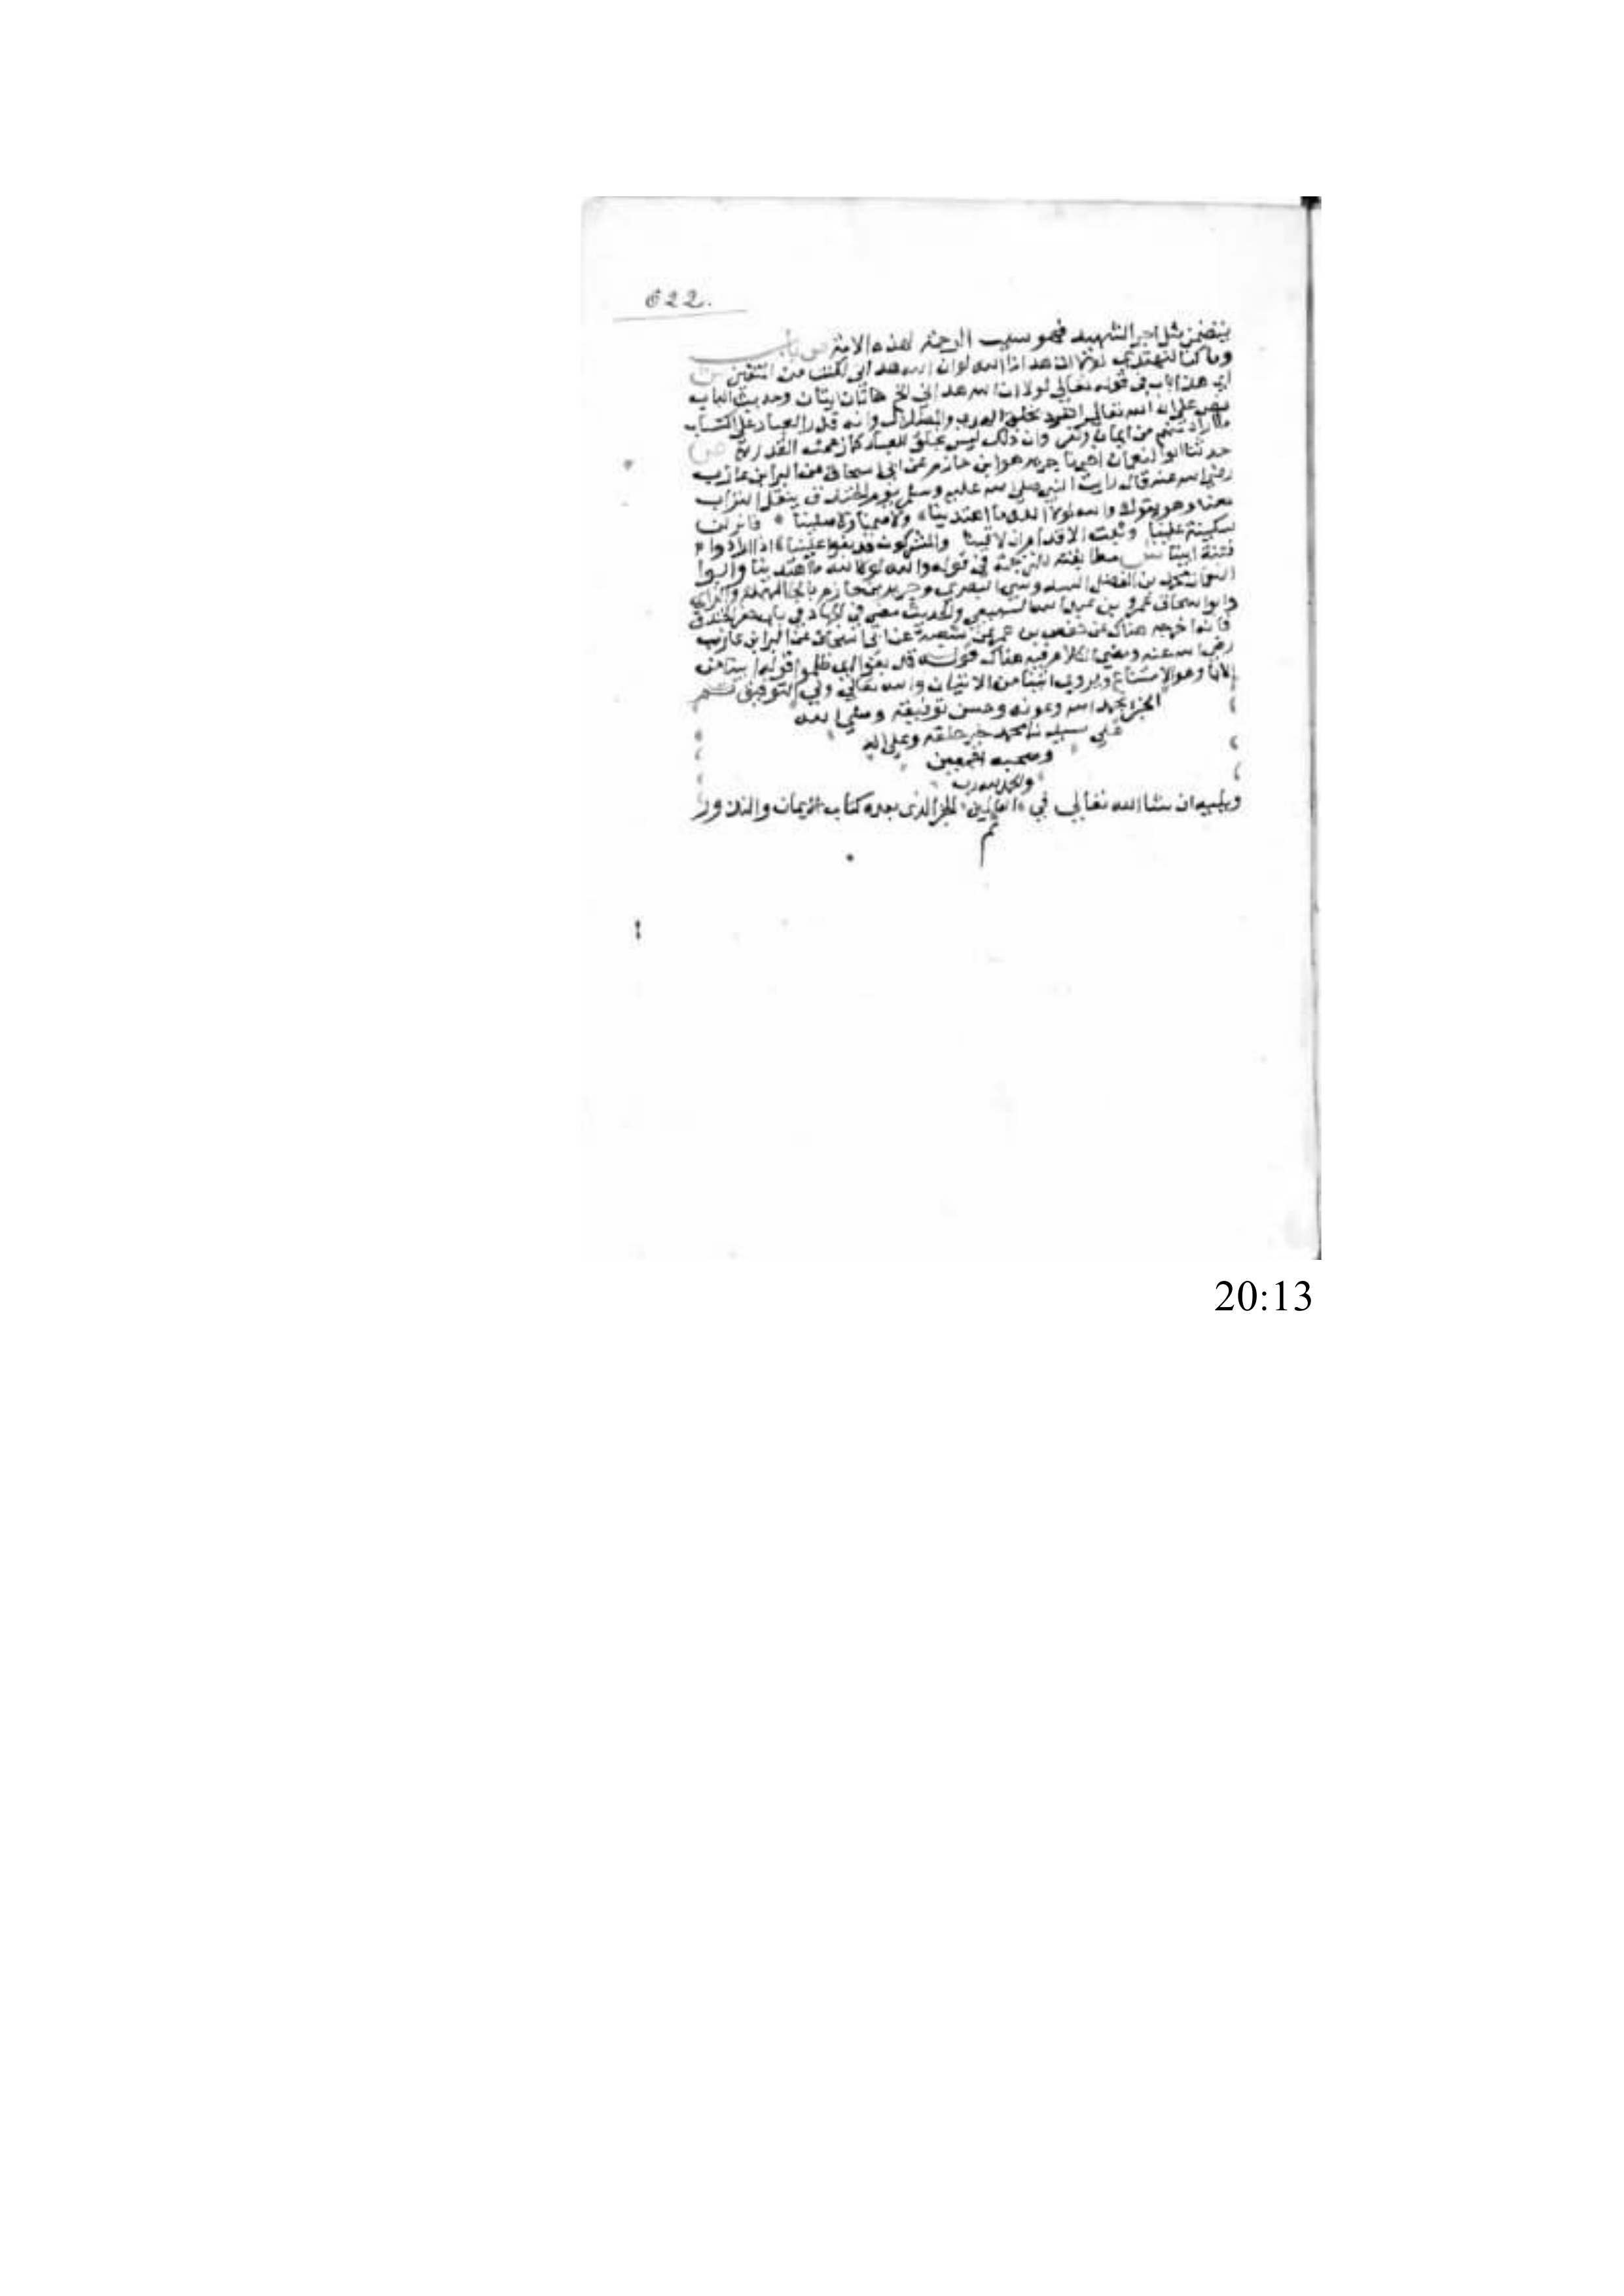 622.
يتضمن مثل اجر الشهيد فهو سبب الرحمة لهذه الامة ص باب
وما كنا لنهتدي لولا ان هدانا الله لو ان الله هداني لكنت من المتقين ش
اي هذا باب في قوله تعالى لولا ان الله هداني الخ هاتان ايتان وحديث الباب
نص على ان الله تعالى انفرد بخلق الهدى والضلال وانه قدر العباد على اكتساب
ما اراد منهم من ايمان وكفر وان ذلك ليس بخلق للعباد كما زعمته القدرية ص
حدثنا ابوا النعمان اخبرنا جرير هو ابن حازم عن ابي اسحاق عن البرا بن عازب
رضي الله عنه قال رايت النبي صلى الله عليه وسلم يوم الخندق ينقل التراب
معنا وهو يقول والله لولا الله ما اهتدينا ولا صمنا ولا صلينا فانزلن
سكينة علينا وثبت الاقدام ان لاقينا والمشركون قد بغوا علينا اذا ارادوا
فتنة ابينا ش مطابقته للترجمة في قوله والله لولا الله ما اهتدينا وابوا
النعمان محمد بن الفضل السدوسي البصري وجرير بن حازم بالحا المهملة والزاي
وابوا سحاق عمرو بن عبد الله السبيعي والحديث مضى في الجهاد في باب حفر الخندق
فانه اخرجه هناك عن حفص بن عمر عن شعبة عن ابي اسحاق عن البرا بن عازب
رضي الله عنه ومضى الكلام فيه هناك قوله قد بغوا اي ظلموا قوله ابينا من
الابا وهو الامتناع ويروى اتينا من الاتيان والله تعالى ولي التوفيق تم
الجز بحمد الله وعونه وحسن توفيقه وصلى الله
على سيدنا محمد خير خلقه وعلى اله
وصحبه اجمعين
والحمد لله رب
ويليه ان شاالله تعالى في العالمين الجز الذى بعده كتاب الايمان والنذور
تم
20:13